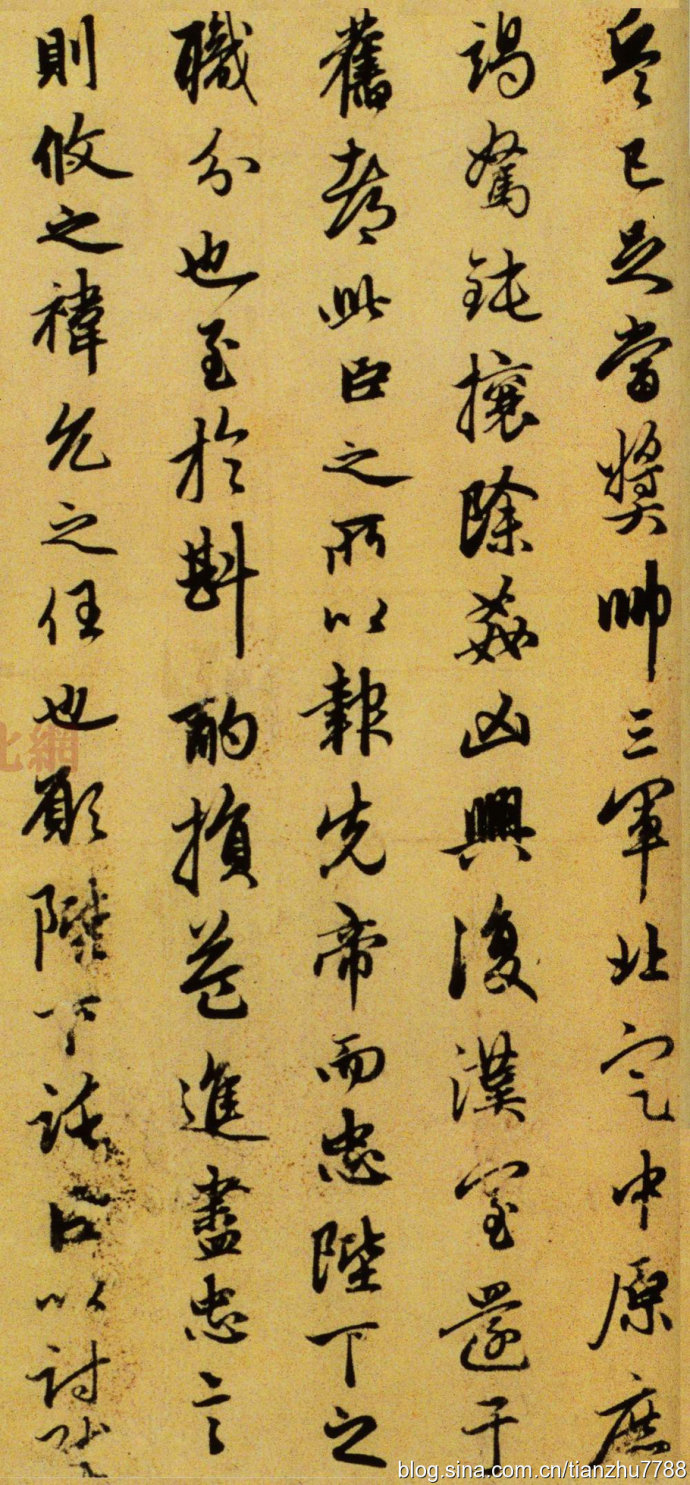 兵已足當獎帥三軍北定中原庶
竭駑鈍攘除姦凶興復漢室還于
舊都此臣之所以報先帝而忠陛下之
職分也至於斟酌損益進盡忠言
則攸之禕允之任也願陛下託臣以討賊
網
blog.sina.com.cn/tianzhu7788